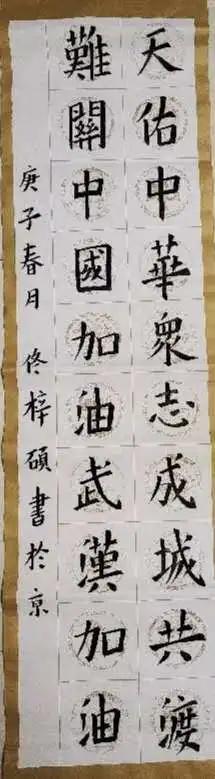 天佑中華衆志成城共渡
難關中國加油武漢加油
庚子春月佟梓碩書於京